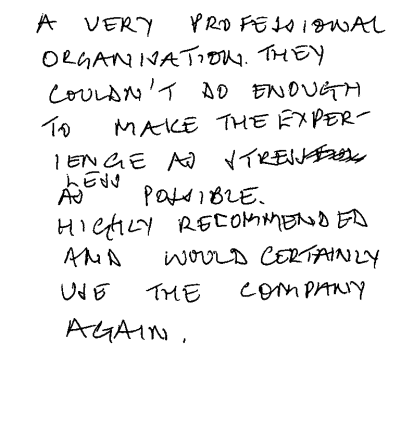 A VERY PROFESSIONAL
ORGANISATION. THEY
COULDN'T DO ENOUGH
TO MAKE THE EXPER-
IENCE AS STRESS
LESS
AS POSSIBLE.
HIGHLY RECOMMENDED
AND WOULD CERTAINLY
USE THE COMPANY
AGAIN.